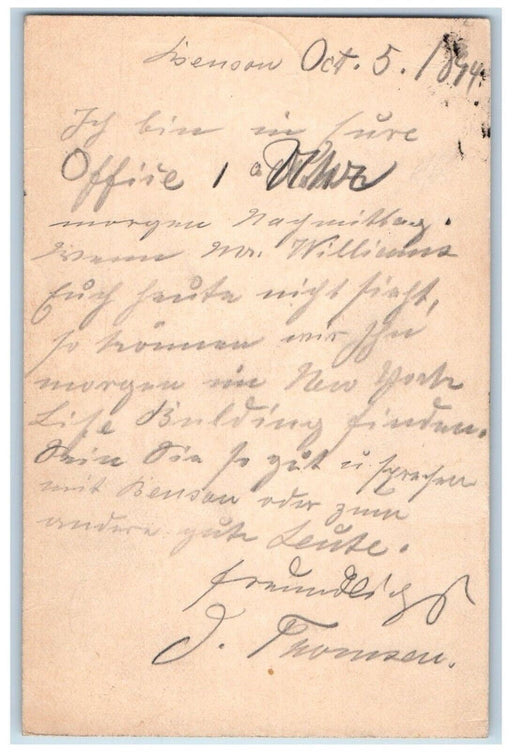 Benson Oct. 5. 1894.
Ich bin in Eure
Office 1 Uhr
morgen Nachmittag.
Wenn Mr. Williams
Euch heute nicht sieht,
so können wir Ihn
morgen im New York
Life Building finden.
Sein Sie so gut u sprechen
mit Benson oder zum
andere gute Leute.
freundlichst
J. Thomsen.